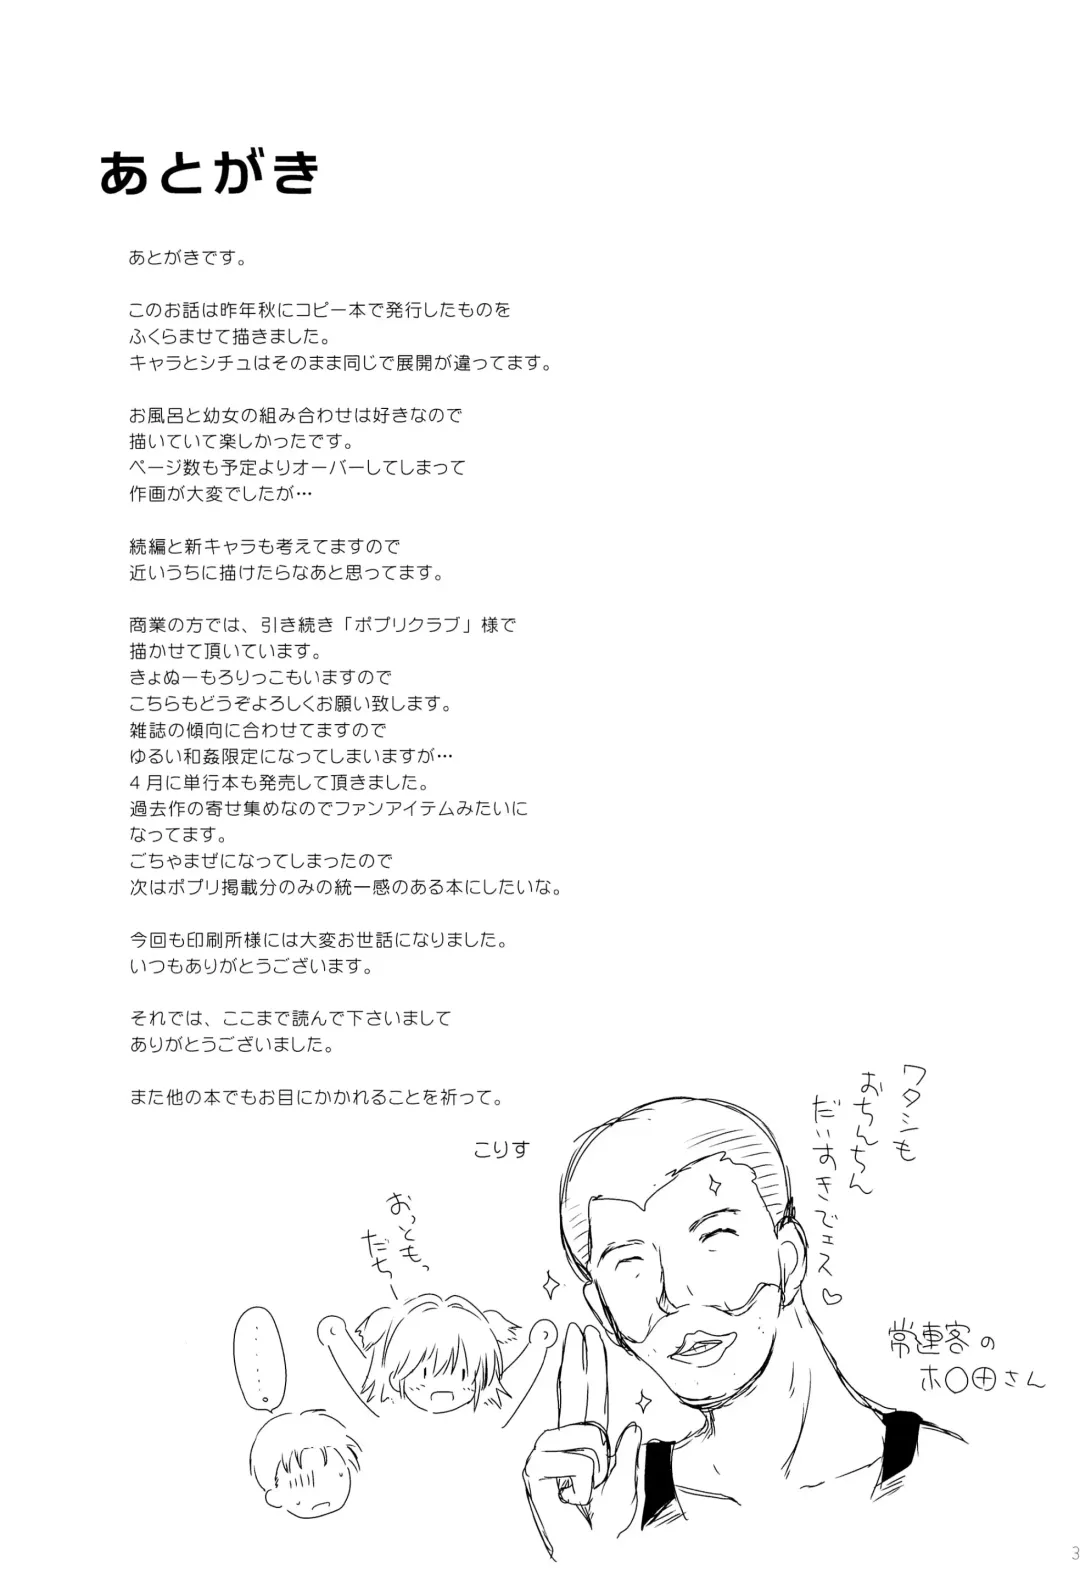 あとがき
あとがきです。
このお話は昨年秋にコピー本で発行したものを
ふくらませて描きました。
キャラとシチュはそのまま同じで展開が違ってます。
お風呂と幼女の組み合わせは好きなので
描いていて楽しかったです。
ページ数も予定よりオーバーしてしまって
作画が大変でしたが…
続編と新キャラも考えてますので
近いうちに描けたらなあと思ってます。
商業の方では、引き続き「ポプリクラブ」様で
描かせて頂いています。
きょぬーもろりっこもいますので
こちらもどうぞよろしくお願い致します。
雑誌の傾向に合わせてますので
ゆるい和姦限定になってしまいますが…
4月に単行本も発売して頂きました。
過去作の寄せ集めなのでファンアイテムみたいに
なってます。
ごちゃまぜになってしまったので
次はポプリ掲載分のみの統一感のある本にしたいな。
今回も印刷所様には大変お世話になりました。
いつもありがとうございます。
それでは、ここまで読んで下さいまして
ありがとうございました。
また他の本でもお目にかかれることを祈って。
こりす
ワタシも
おちんちん
だいすきでェス♡
おっともっ
だちー
………
常連客の
ホ○田さん
3